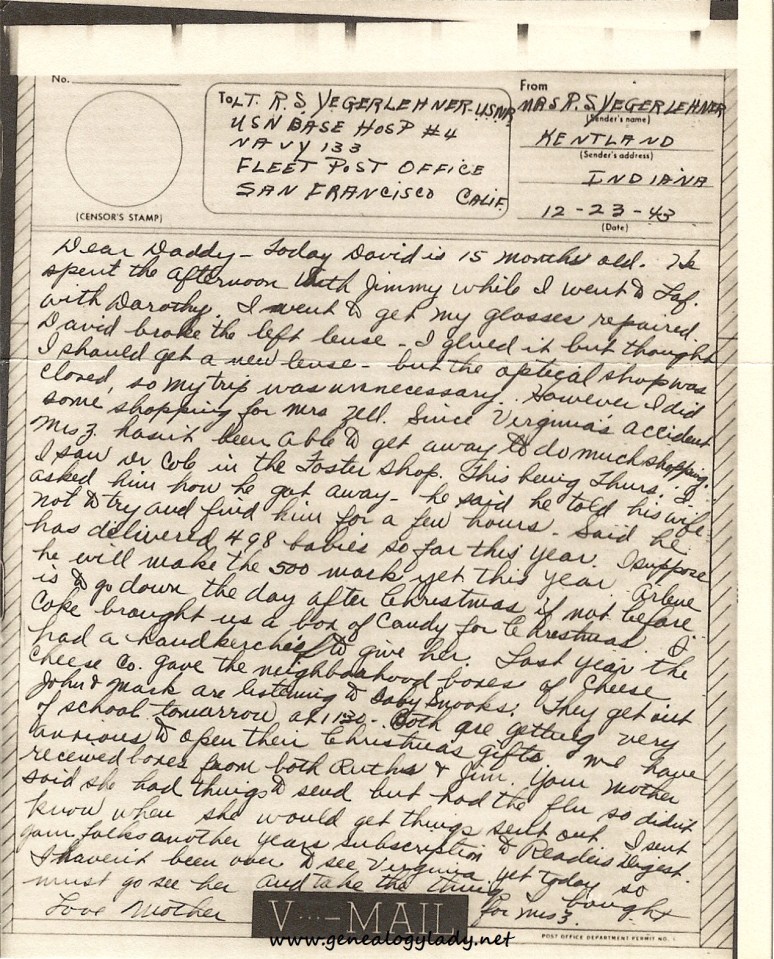 No.
(CENSOR'S STAMP)
To LT. R.S YEGERLEHNER-USNR
USN BASE HOSP #4
NAVY 133
FLEET POST OFFICE
SAN FRANCISCO CALIF.
From
MRS R.S YEGERLEHNER
(Sender's name)
KENTLAND
(Sender's address)
INDIANA
12-23-43
(Date)
Dear Daddy - Today David is 15 months old. He
spent the afternoon with Jimmy while I went to Laf.
with Dorothy. I went to get my glasses repaired.
David broke the left lense - I glued it but thought
I should get a new lense - but the optical shop was
closed, so my trip was unnecessary. However I did
some shopping for Mrs Zell. Since Virginia's accident
Mrs Z. hasn't been able to get away to do much shopping.
I saw Dr Cole in the Foster Shop. This being Thurs. I
asked him how he got away - he said he told his wife
not to try and find him for a few hours. Said he
has delivered 498 babies so far this year. I suppose
he will make the 500 mark yet this year. Arlene
is to go down the day after Christmas if not before.
Coke brought us a box of Candy for Christmas. I
had a handkerchief to give her. Last year the
Cheese Co. gave the neighborhood boxes of Cheese
John & Mark are listening to Baby Snooks. They get out
of school tomorrow at 1130 - Both are getting very
anxious to open their Christmas gifts. We have
received boxes from both Ruths & Jim. Your Mother
said she had things to send but had the flu so didn't
know when she would get things sent out. I sent
your folks another years subscription to Readers Digest.
I haven't been over to see Virginia yet today so
must go see her and take the things I bought
for Mrs Z.
Love Mother
V···—MAIL
POST OFFICE DEPARTMENT PERMIT NO. 1
www.genealogylady.net